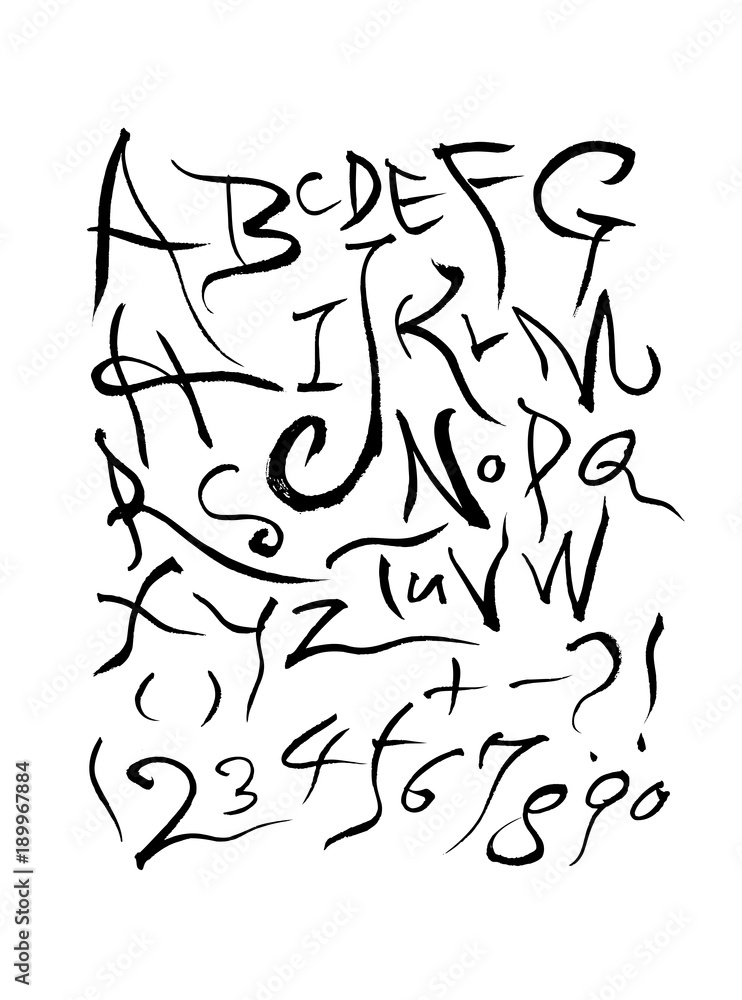 ABCDEFG
HIJKLM
NOPQ
RS
TUVW
XYZ
()+-?!
1234567890
Adobe Stock | #189967884